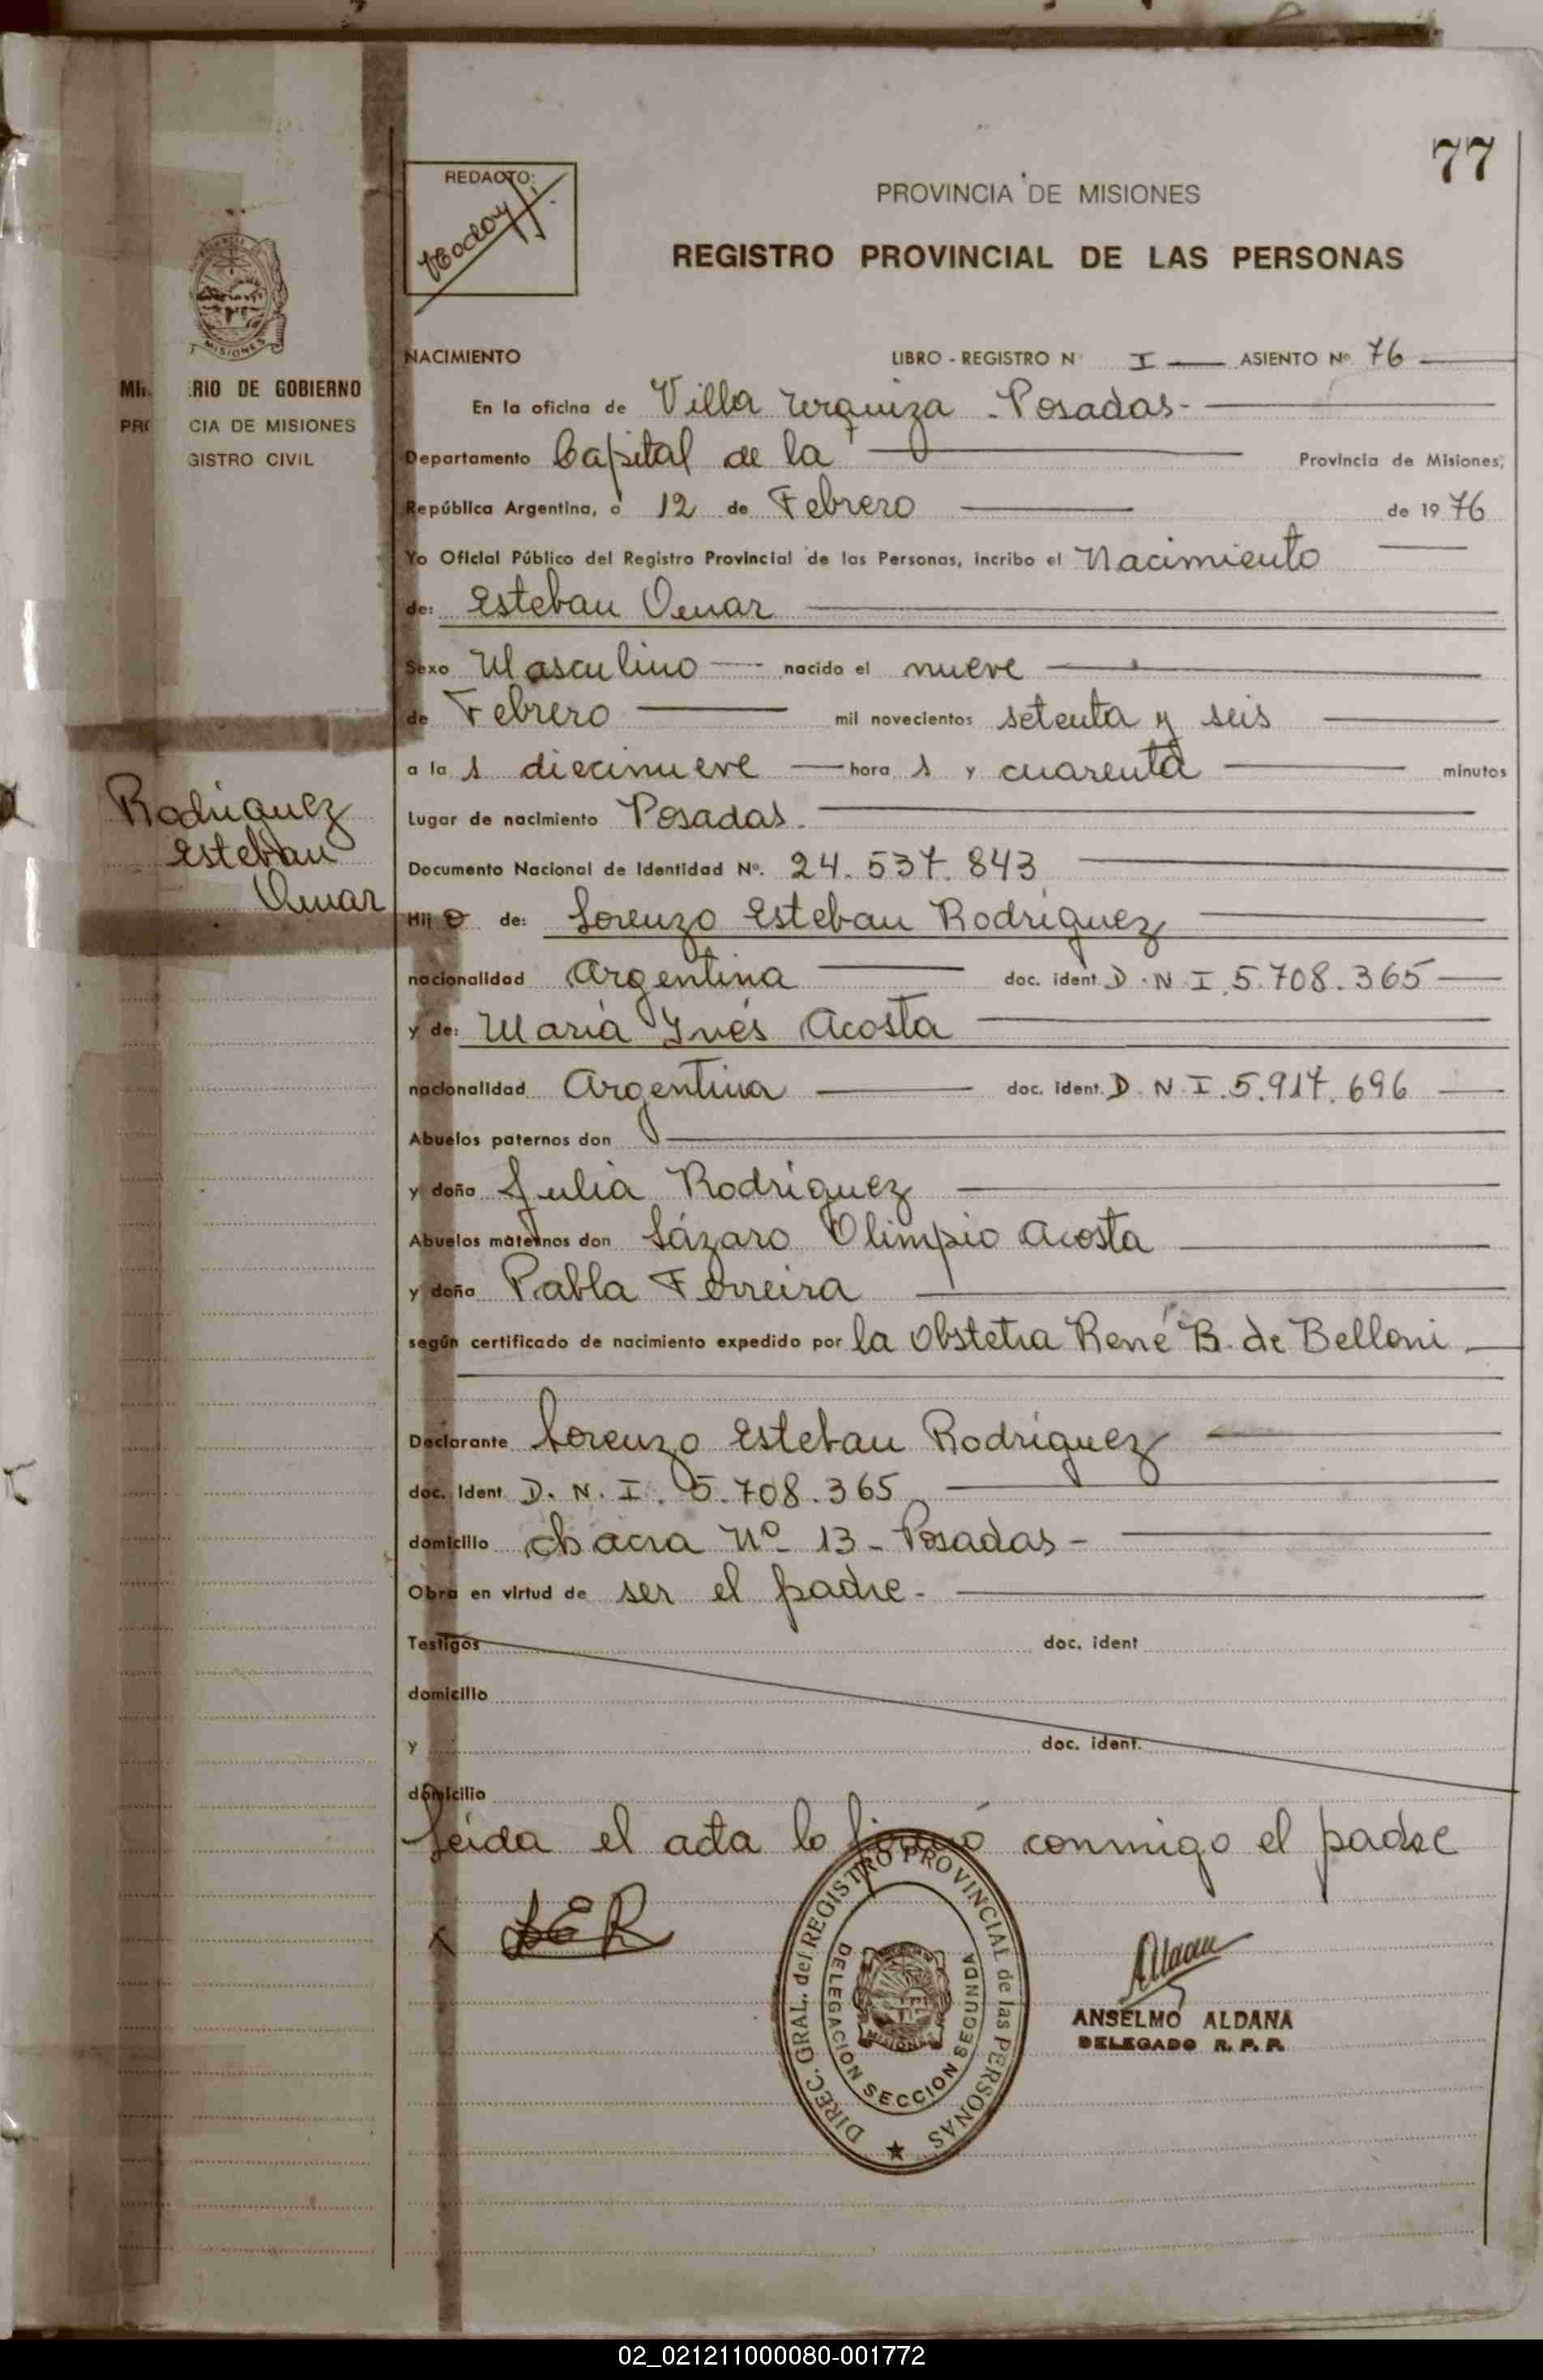 77
REDACTO:
PROVINCIA DE MISIONES
REGISTRO PROVINCIAL DE LAS PERSONAS
NACIMIENTO LIBRO - REGISTRO Nº I ASIENTO Nº 76
En la oficina de Villa Urquiza - Posadas -
Departamento Capital de la Provincia de Misiones,
República Argentina, a 12 de Febrero de 1976
Yo Oficial Público del Registro Provincial de las Personas, incribo el Nacimiento
de: Esteban Omar
Sexo Masculino nacido el nueve
de Febrero mil novecientos setenta y seis
a la s diecinueve hora s y cuarenta minutos
Lugar de nacimiento Posadas.
Documento Nacional de Identidad Nº. 24.537.843
Hij o de: Lorenzo Esteban Rodriguez
nacionalidad Argentina doc. ident. D.N.I. 5.708.365
y de: Maria Inés Acosta
nacionalidad Argentina doc. ident. D.N.I. 5.917.696
Abuelos paternos don
y doña Julia Rodriguez
Abuelos maternos don Lázaro Olimpio Acosta
y doña Pabla Ferreira
según certificado de nacimiento expedido por la Obstetra René B. de Belloni
Declarante Lorenzo Esteban Rodriguez
doc. Ident D.N.I. 5.708.365
domicilio chacra Nº 13 - Posadas -
Obra en virtud de ser el padre -
Testigos doc. ident
domicilio
y doc. ident.
domicilio
Leida el acta lo firmó conmigo el padre
LER
DIREC. GRAL. del REGISTRO PROVINCIAL de las PERSONAS
DELEGACION SECCION SEGUNDA
MISIONES
ANSELMO ALDANA
DELEGADO R. P. P.
MISIONES
MI RIO DE GOBIERNO
PRO CIA DE MISIONES
GISTRO CIVIL
Rodriguez
Esteban
Omar
02_021211000080-001772